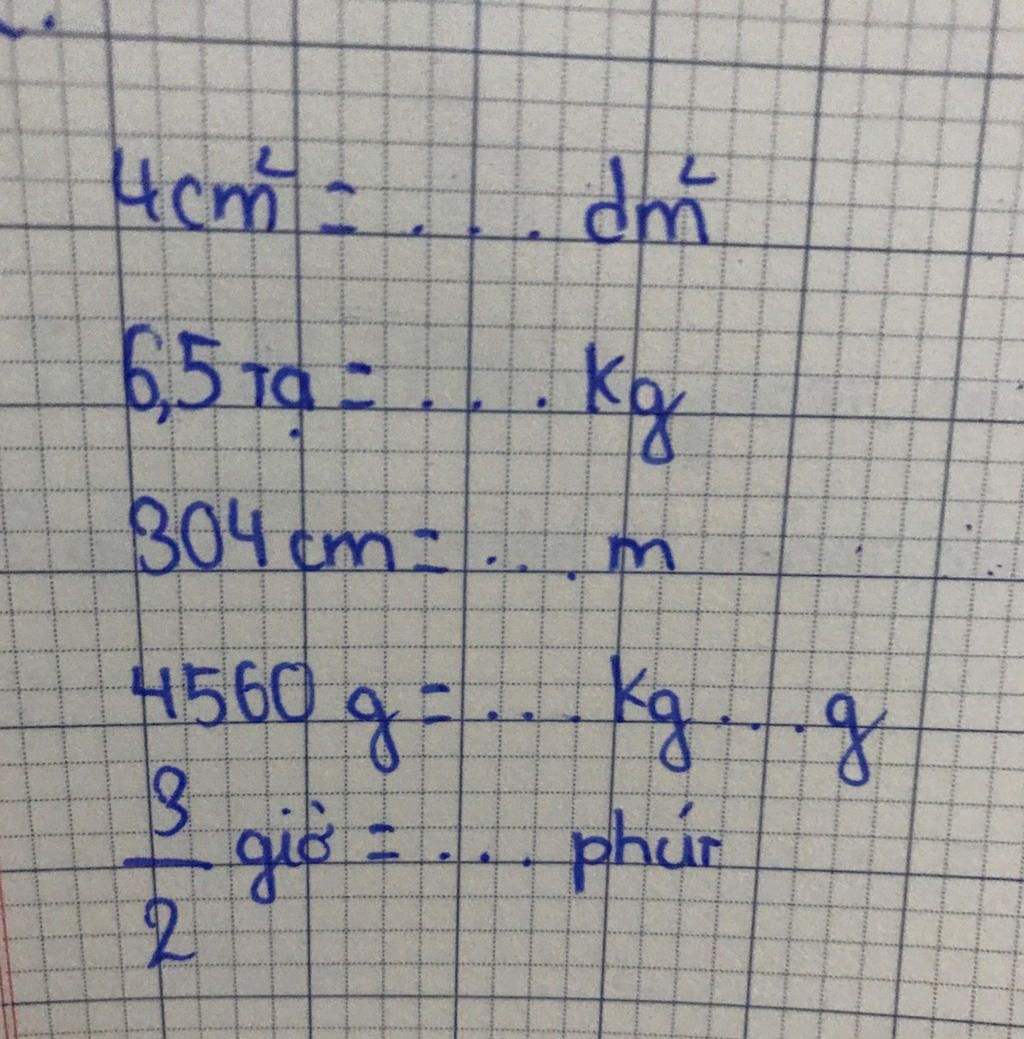 4cm² = ... dm²
6,5 tạ = ... kg
304 cm = ... m
4560 g = ... kg ... g
3/2 giờ = ... phút